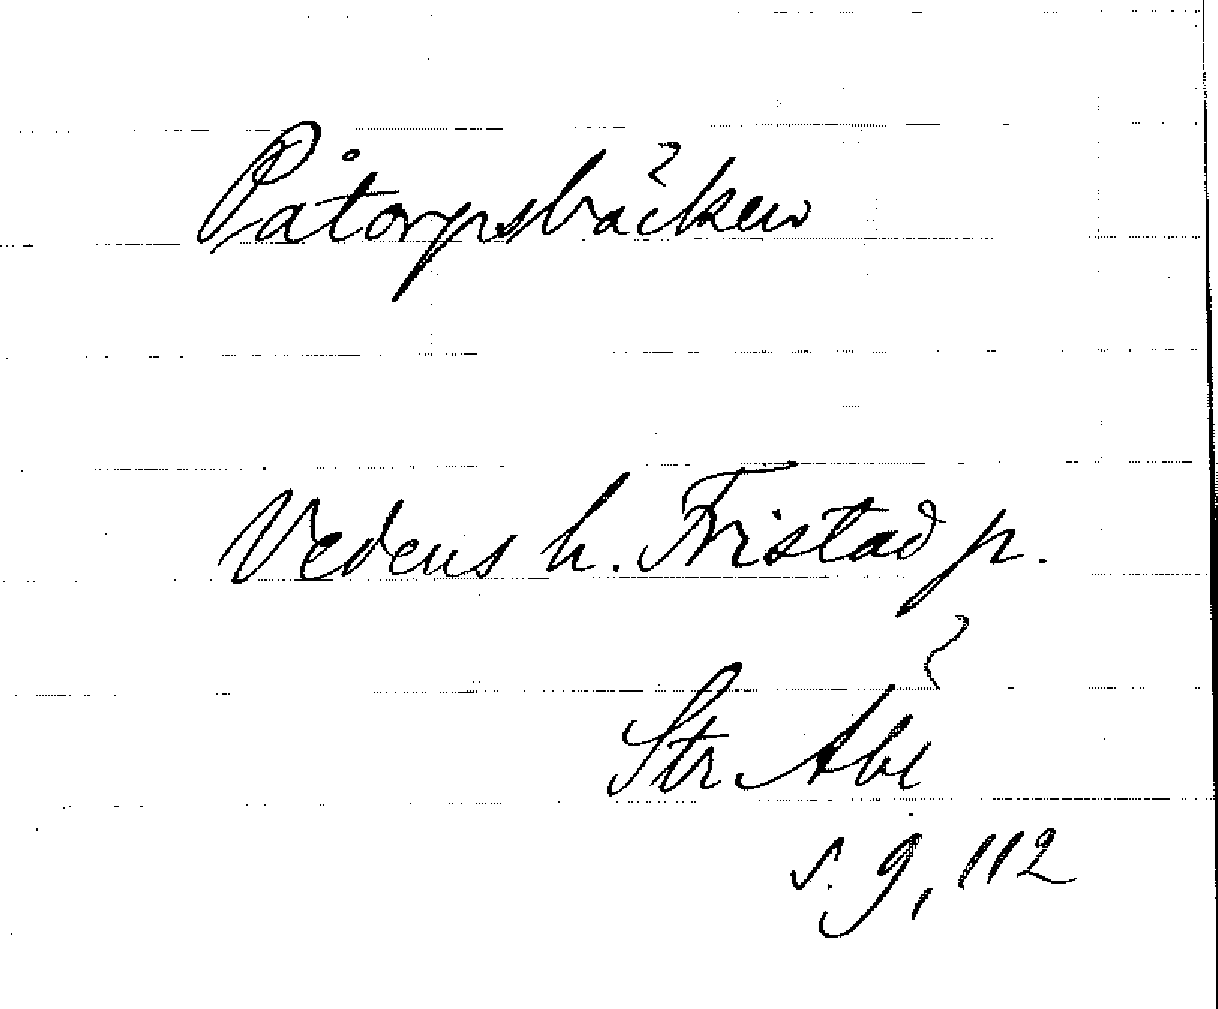 Påtorpsbäcken
Vedens h. Fristad p.
Str Abc
s. 9, 112